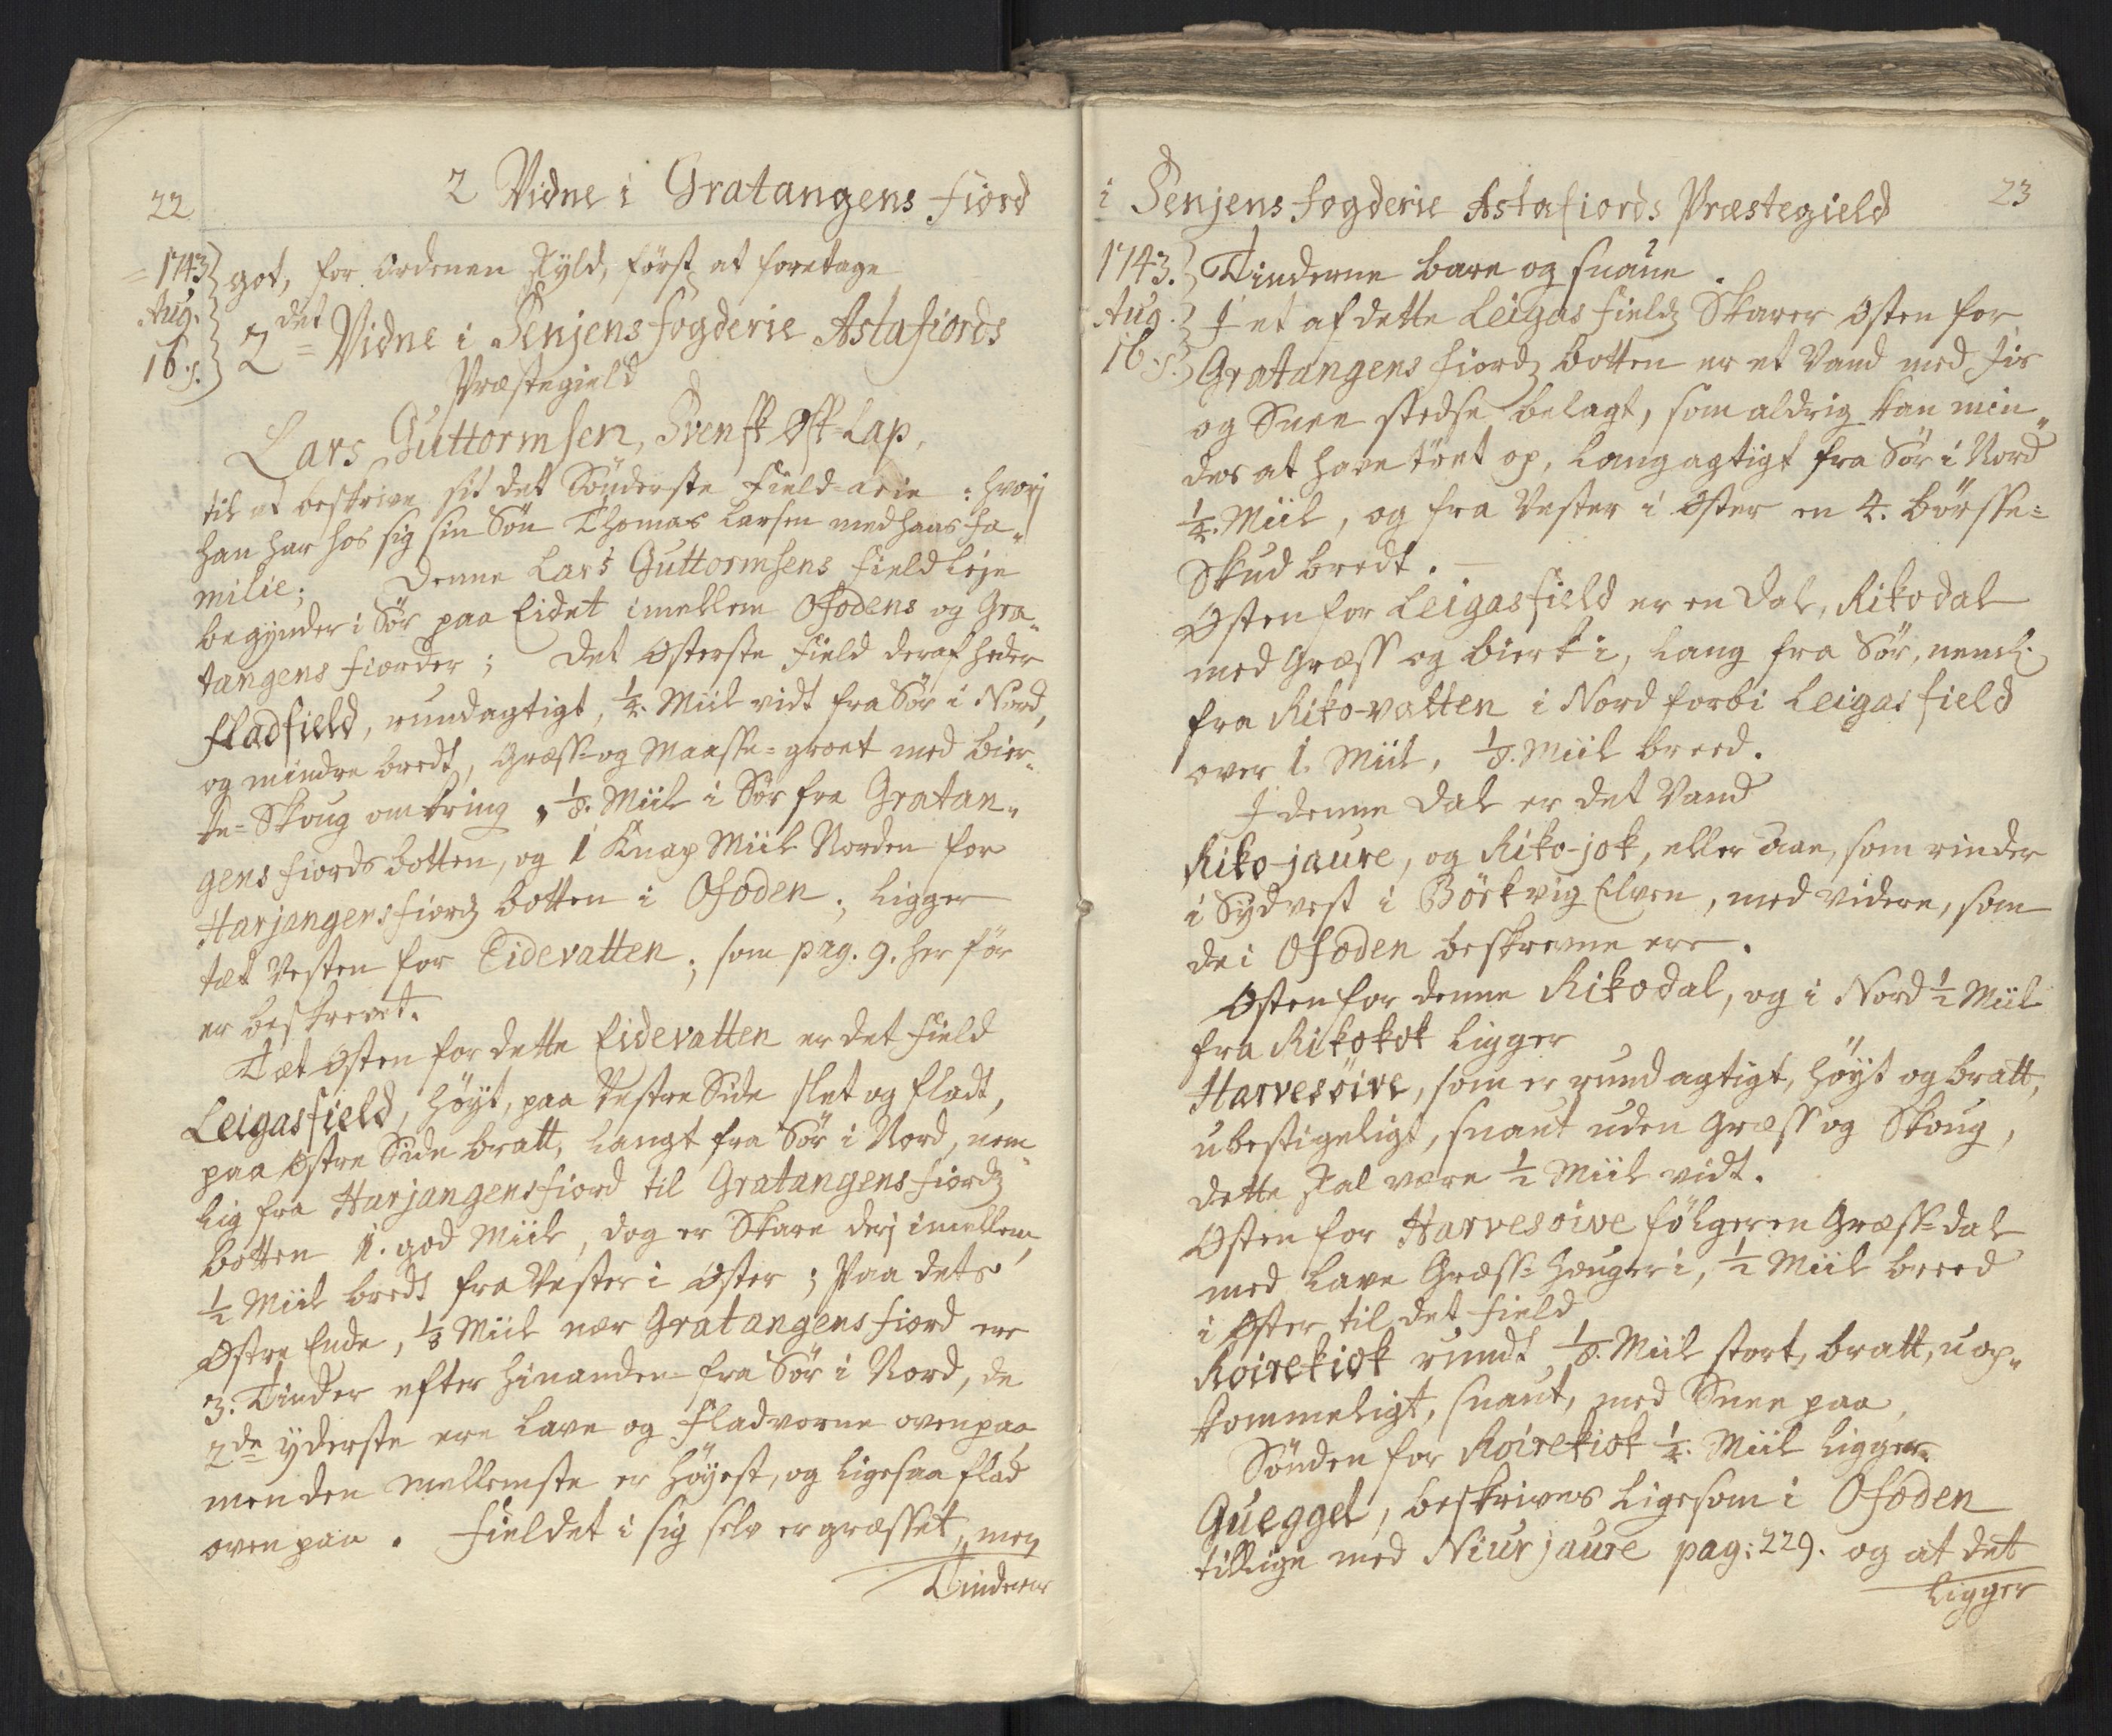 22
2 Vidne i Gratangens Fiord
1743
Aug.
16. s.
got, for Ordenen skyld, först at foretage
2det Vidne i Senjens fogderie Astafiords
Præstegield
Lars Guttormsen, Svensk Øst-Lap,
til at beskrive sit det Sönderste Field-leie : hvorj
han har hos sig sin Sön Thomas Larsen med hans fa„
milie; Denne Lars Guttormsens field Leje
begynder i Sör paa Eidet imellem Ofodens og Gra„
tangens fiorder; Det Osterste Field deraf heder
Fladfield, rundagtigt, 1/4. Miil vidt fra Sör i Nord,
og mindre bredt, Græss- og Maasse-groet med bier„
ke-Skoug omkring, 1/8. Miil i Sör fra Gratan„
gens fiords botten, og 1 Knap Miil Norden for
Harjangens fiords botten i Ofoden; ligger
tæt Vesten for Eidevatten; som pag. 9. her för
er beskrevet.
Tæt Osten for dette Eidevatten er det Field
Leigasfield, höyt, paa Vestre Side slet og fladt,
paa Ostre Side bratt, langt fra Sör i Nord, nem„
lig fra Harjangensfiord til Gratangens fiords
botten 1. god Miil, dog er Skare derj imellem,
1/2 Miil bredt fra Vester i Oster; Paa dets
Ostre Ende, 1/8 Miil nær Gratangens fiord ere
3. Tinder efter hinanden fra Sör i Nord, de
2de yderste ere lave og Fladvorne ovenpaa
men den mellemste er höyest, og ligesaa flad
oven paa. Fieldet i sig selv er græsset, men
Tinderne
i Senjens fogderie Astafiords Præstegield
23
1743.
Aug.
16. s.
Tinderne bare og snaue.
I et af dette Leigas fields Skarer Osten for
Gratangens fiords botten er et Vand med Jis
og Snee stedse belagt, som aldrig kan min„
des at have töet op, langagtigt fra Sör i Nord
1/4. Miil, og fra Vester i Oster en 4. börsse-
Skud bredt. —
Osten for Leigasfield er en Dal, Rikodal
med Græss og bierk i, lang fra Sör, neml:
fra Riko-vatten i Nord forbi Leigasfield
over 1. Miil, 1/8. Miil breed.
I denne Dal er det Vand
Riko-jaure, og Riko-jok, eller aae, som rinder
i Sydvest i Börkvig Elven, med videre, som
de i Ofoden beskrevne ere.
Osten for denne Rikodal, og i Nord 1/2 Miil
fra Rikokok ligger
Harvesöive, som er rundagtigt, höyt og bratt,
ubestigeligt, snaut uden Græss og Skoug,
dette skal være 1/2 Miil vidt.
Osten for Harvesoive fölger en Græss-dal
med lave Græss-Hauger i, 1/2 Miil breed
i Oster til det Field
Roirekiok rundt 1/8. Miil stort, bratt, uop„
kommeligt, snaut, med Snee paa,
Sönden for Roirekiok 1/4. Miil ligger
Gueggel, beskrives ligesom i Ofoden
tillige med Niurjaure pag: 229. og at det
ligger